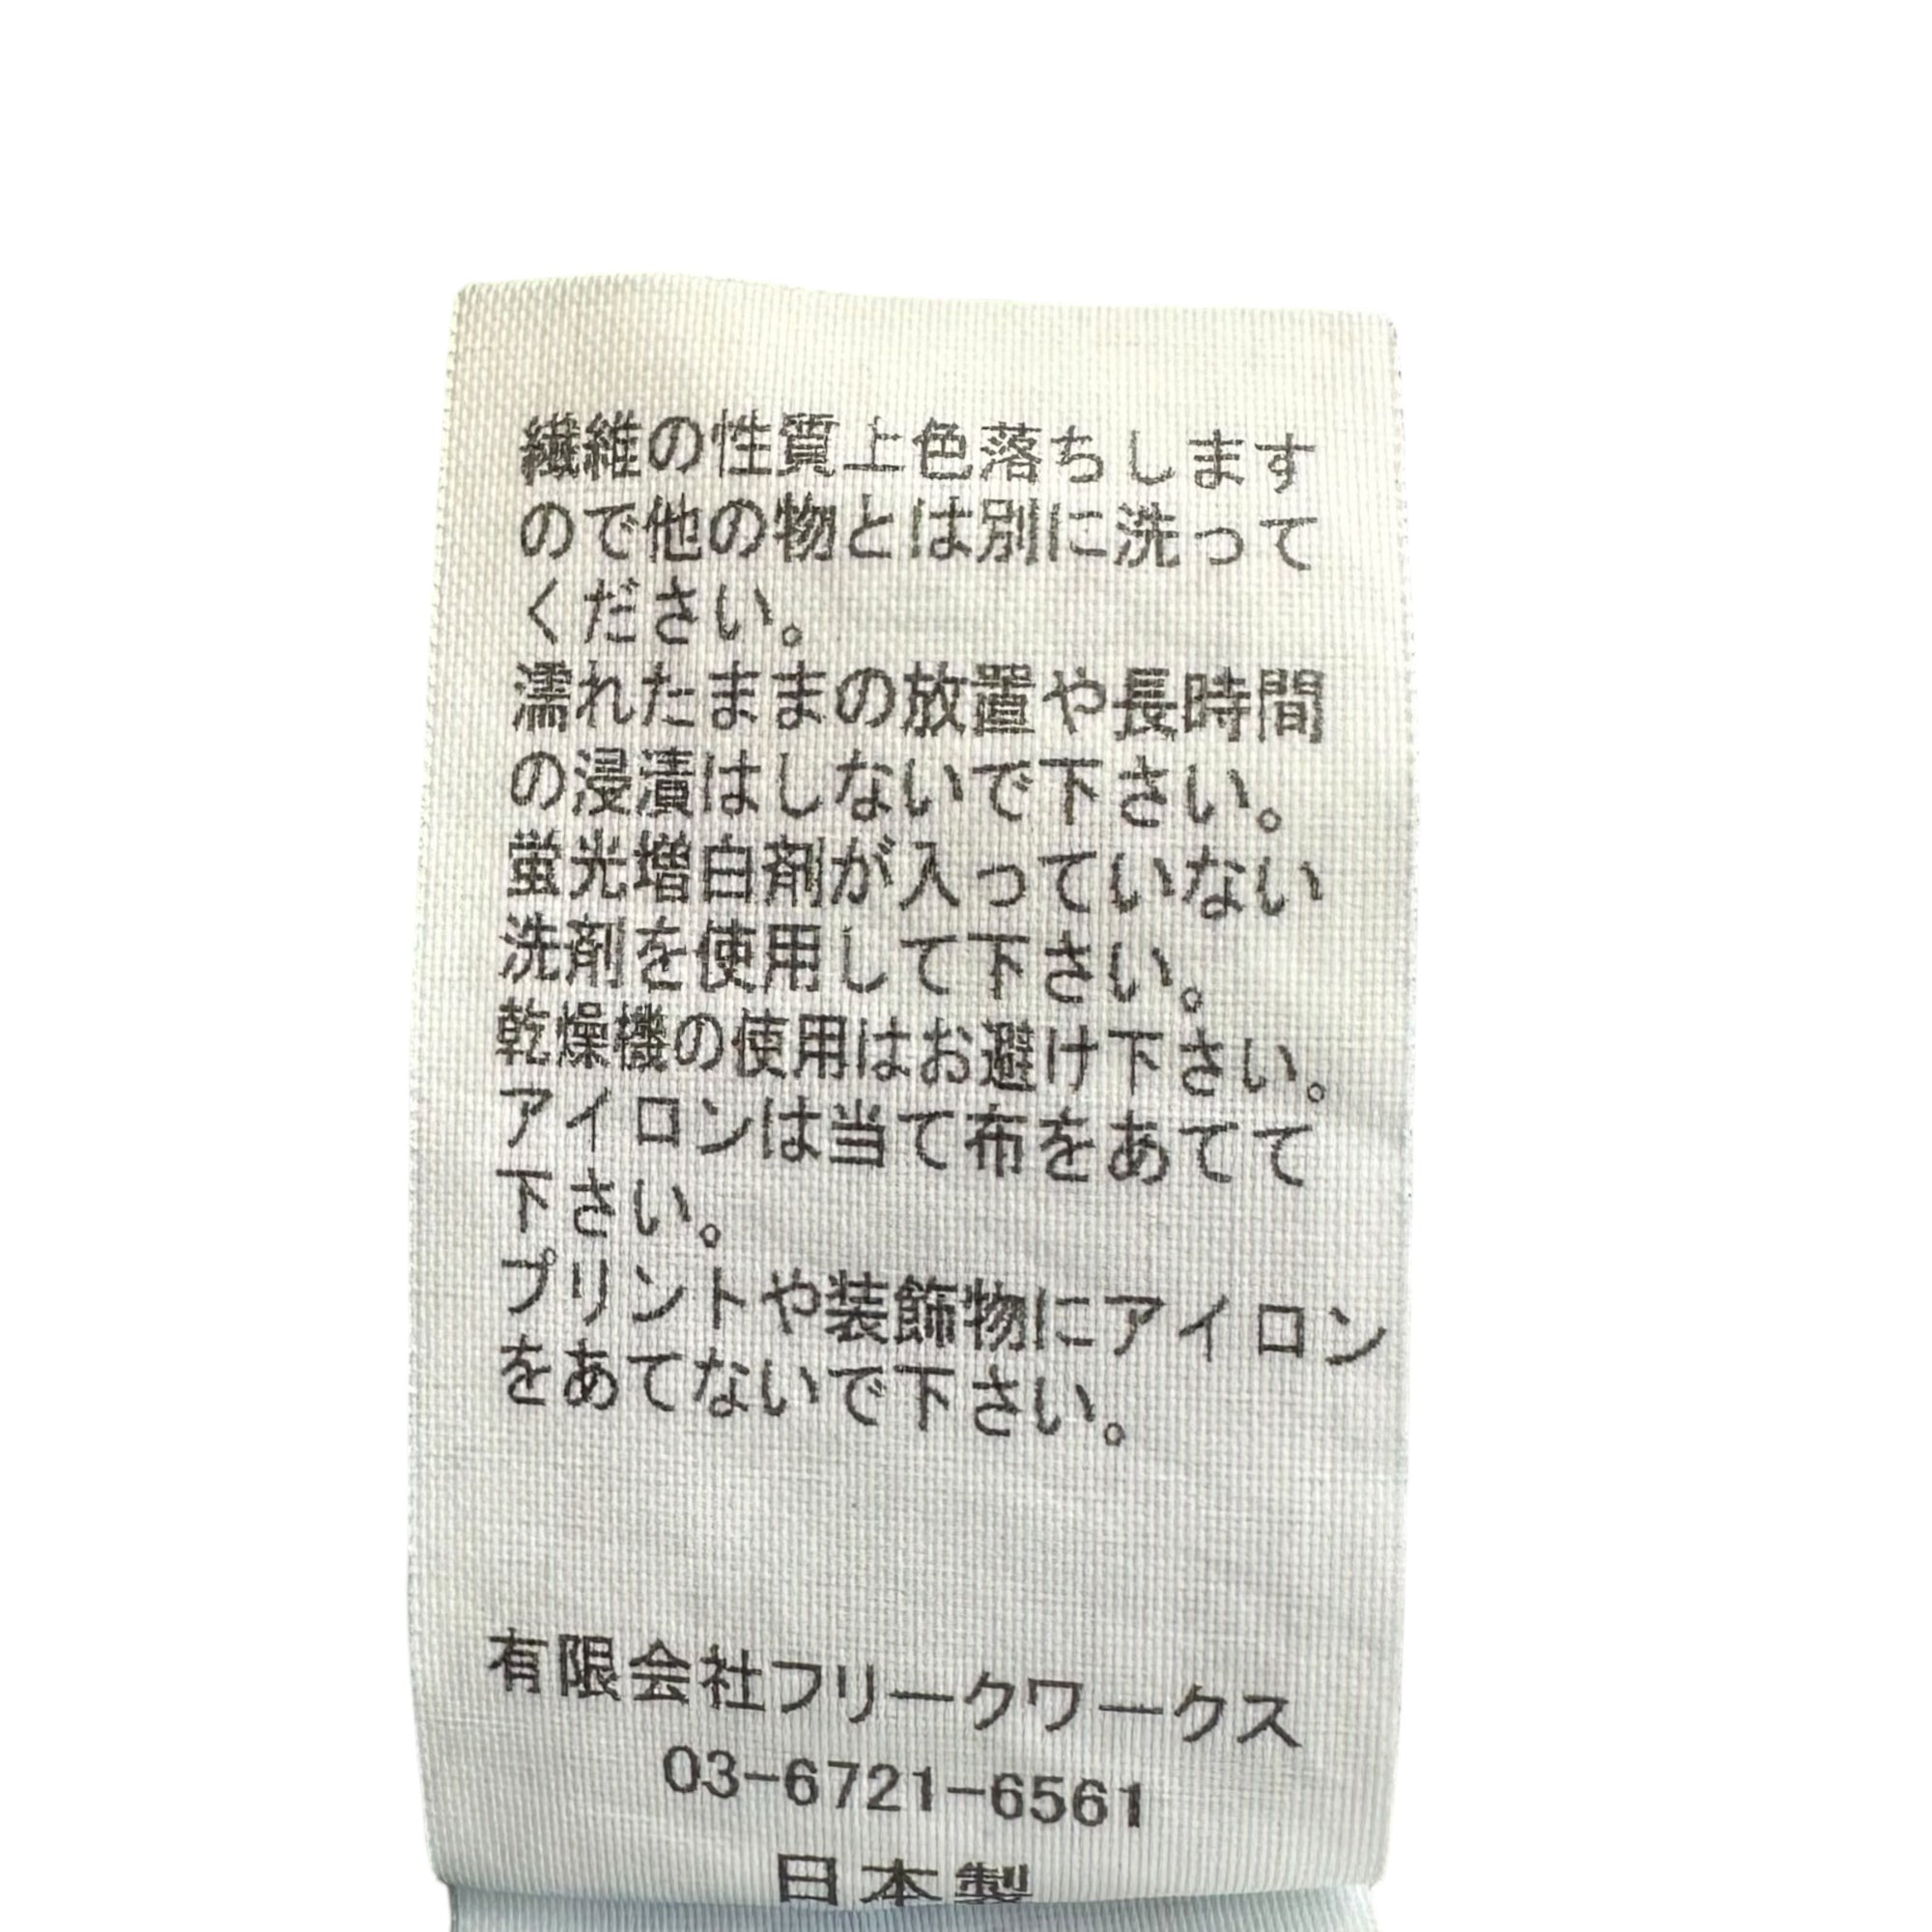 繊維の性質上色落ちします
ので他の物とは別に洗って
ください。
濡れたままの放置や長時間
の浸漬はしないで下さい。
蛍光増白剤が入っていない
洗剤を使用して下さい。
乾燥機の使用はお避け下さい。
アイロンは当て布をあてて
下さい。
プリントや装飾物にアイロン
をあてないで下さい。
有限会社フリークワークス
03-6721-6561
日本製